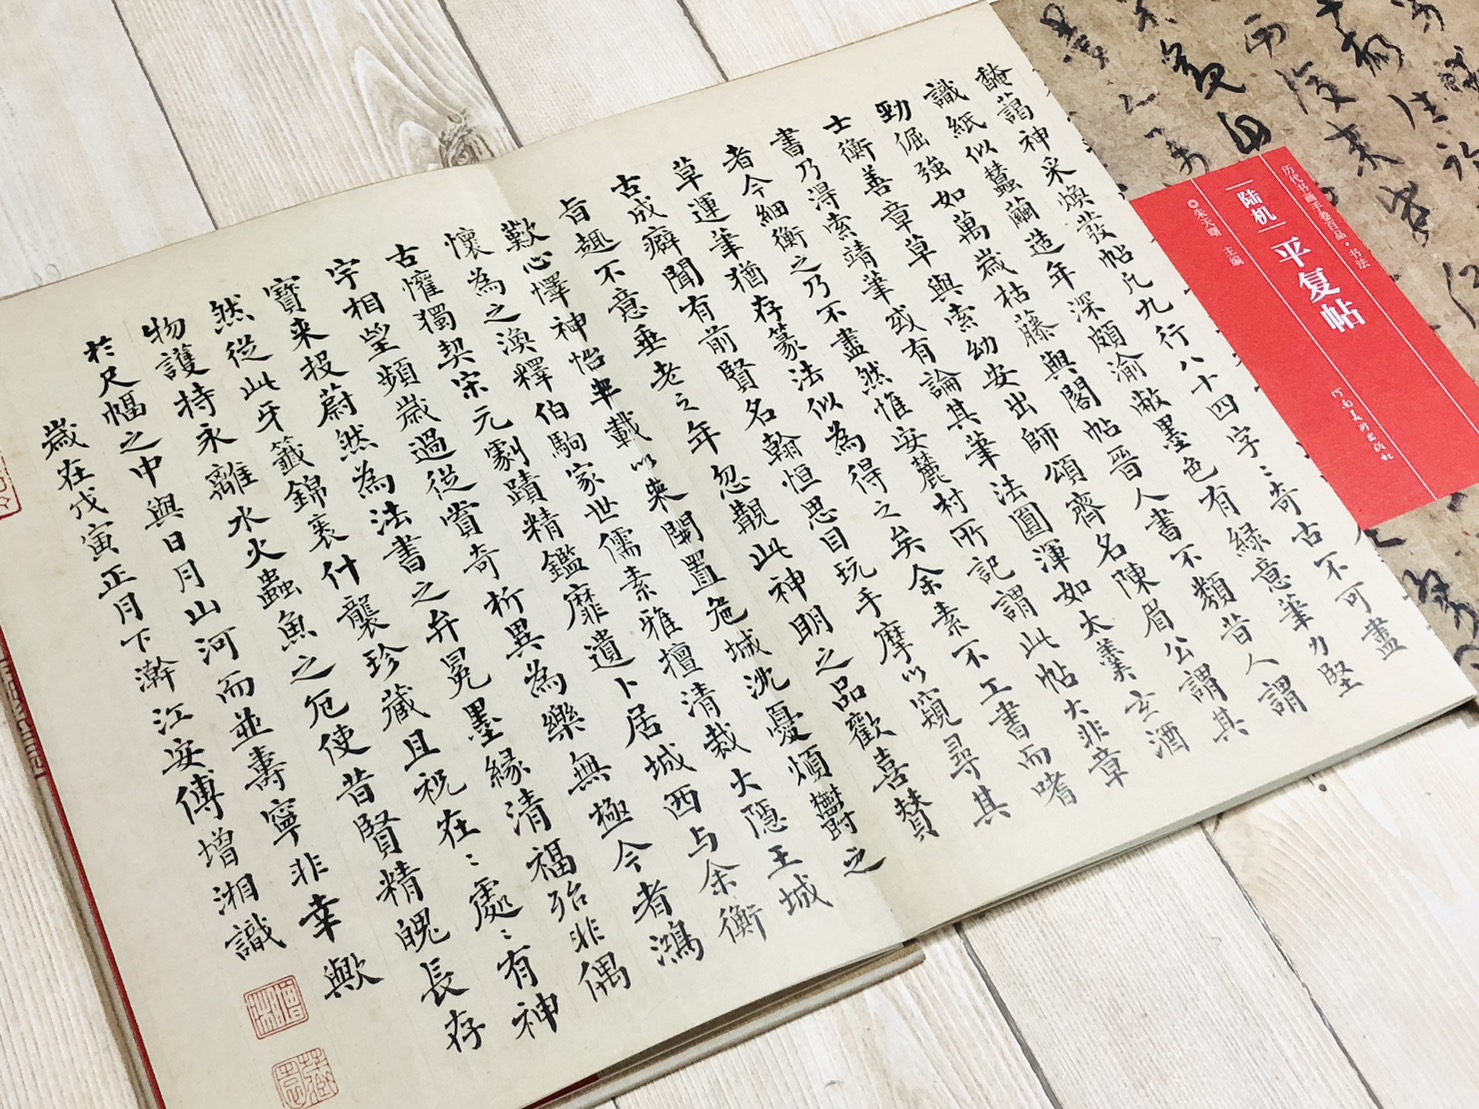 馣藹神采煥發帖凡九行八十四字〻奇古不可盡
識紙似蠶繭造年深頗渝敝墨色有綠意筆力堅
勁倔強如萬歲枯藤與閣帖晉人書不類昔人謂
士衡善章草與索幼安出師頌齊名陳眉公謂其
書乃得索靖筆或有論其筆法圓渾如太羹玄酒
者今細衡之乃不盡然惟安麓村所記謂此帖大非章
草運筆猶存篆法似為得之矣余素不工書而嗜
古成癖聞有前賢名翰恒思目玩手摩以窺尋其
旨趣不意垂老之年忽覩此神明之品歡喜贊
歎心懌神怡半載以來閉置危城沈憂煩鬱之
懷為之渙釋伯駒家世儒素雅擅清裁大隱王城
古懽獨契宋元劇蹟精鑑靡遺卜居城西与余衡
宇相望頻歲過從賞奇析異為樂無極今者鴻
寶來投蔚然為法書之弁冕墨緣清福殆非偶
然從此牙籤錦裹什襲珍藏且祝在〻處〻有神
物護持永離水火蟲魚之厄使昔賢精魄長存
於尺幅之中與日月山河而並壽寧非幸歟
歲在戊寅正月下澣江安傅增湘識
增湘
历代书画手卷百品·书法
陆机
平复帖
朱天曙 主编
河南美术出版社